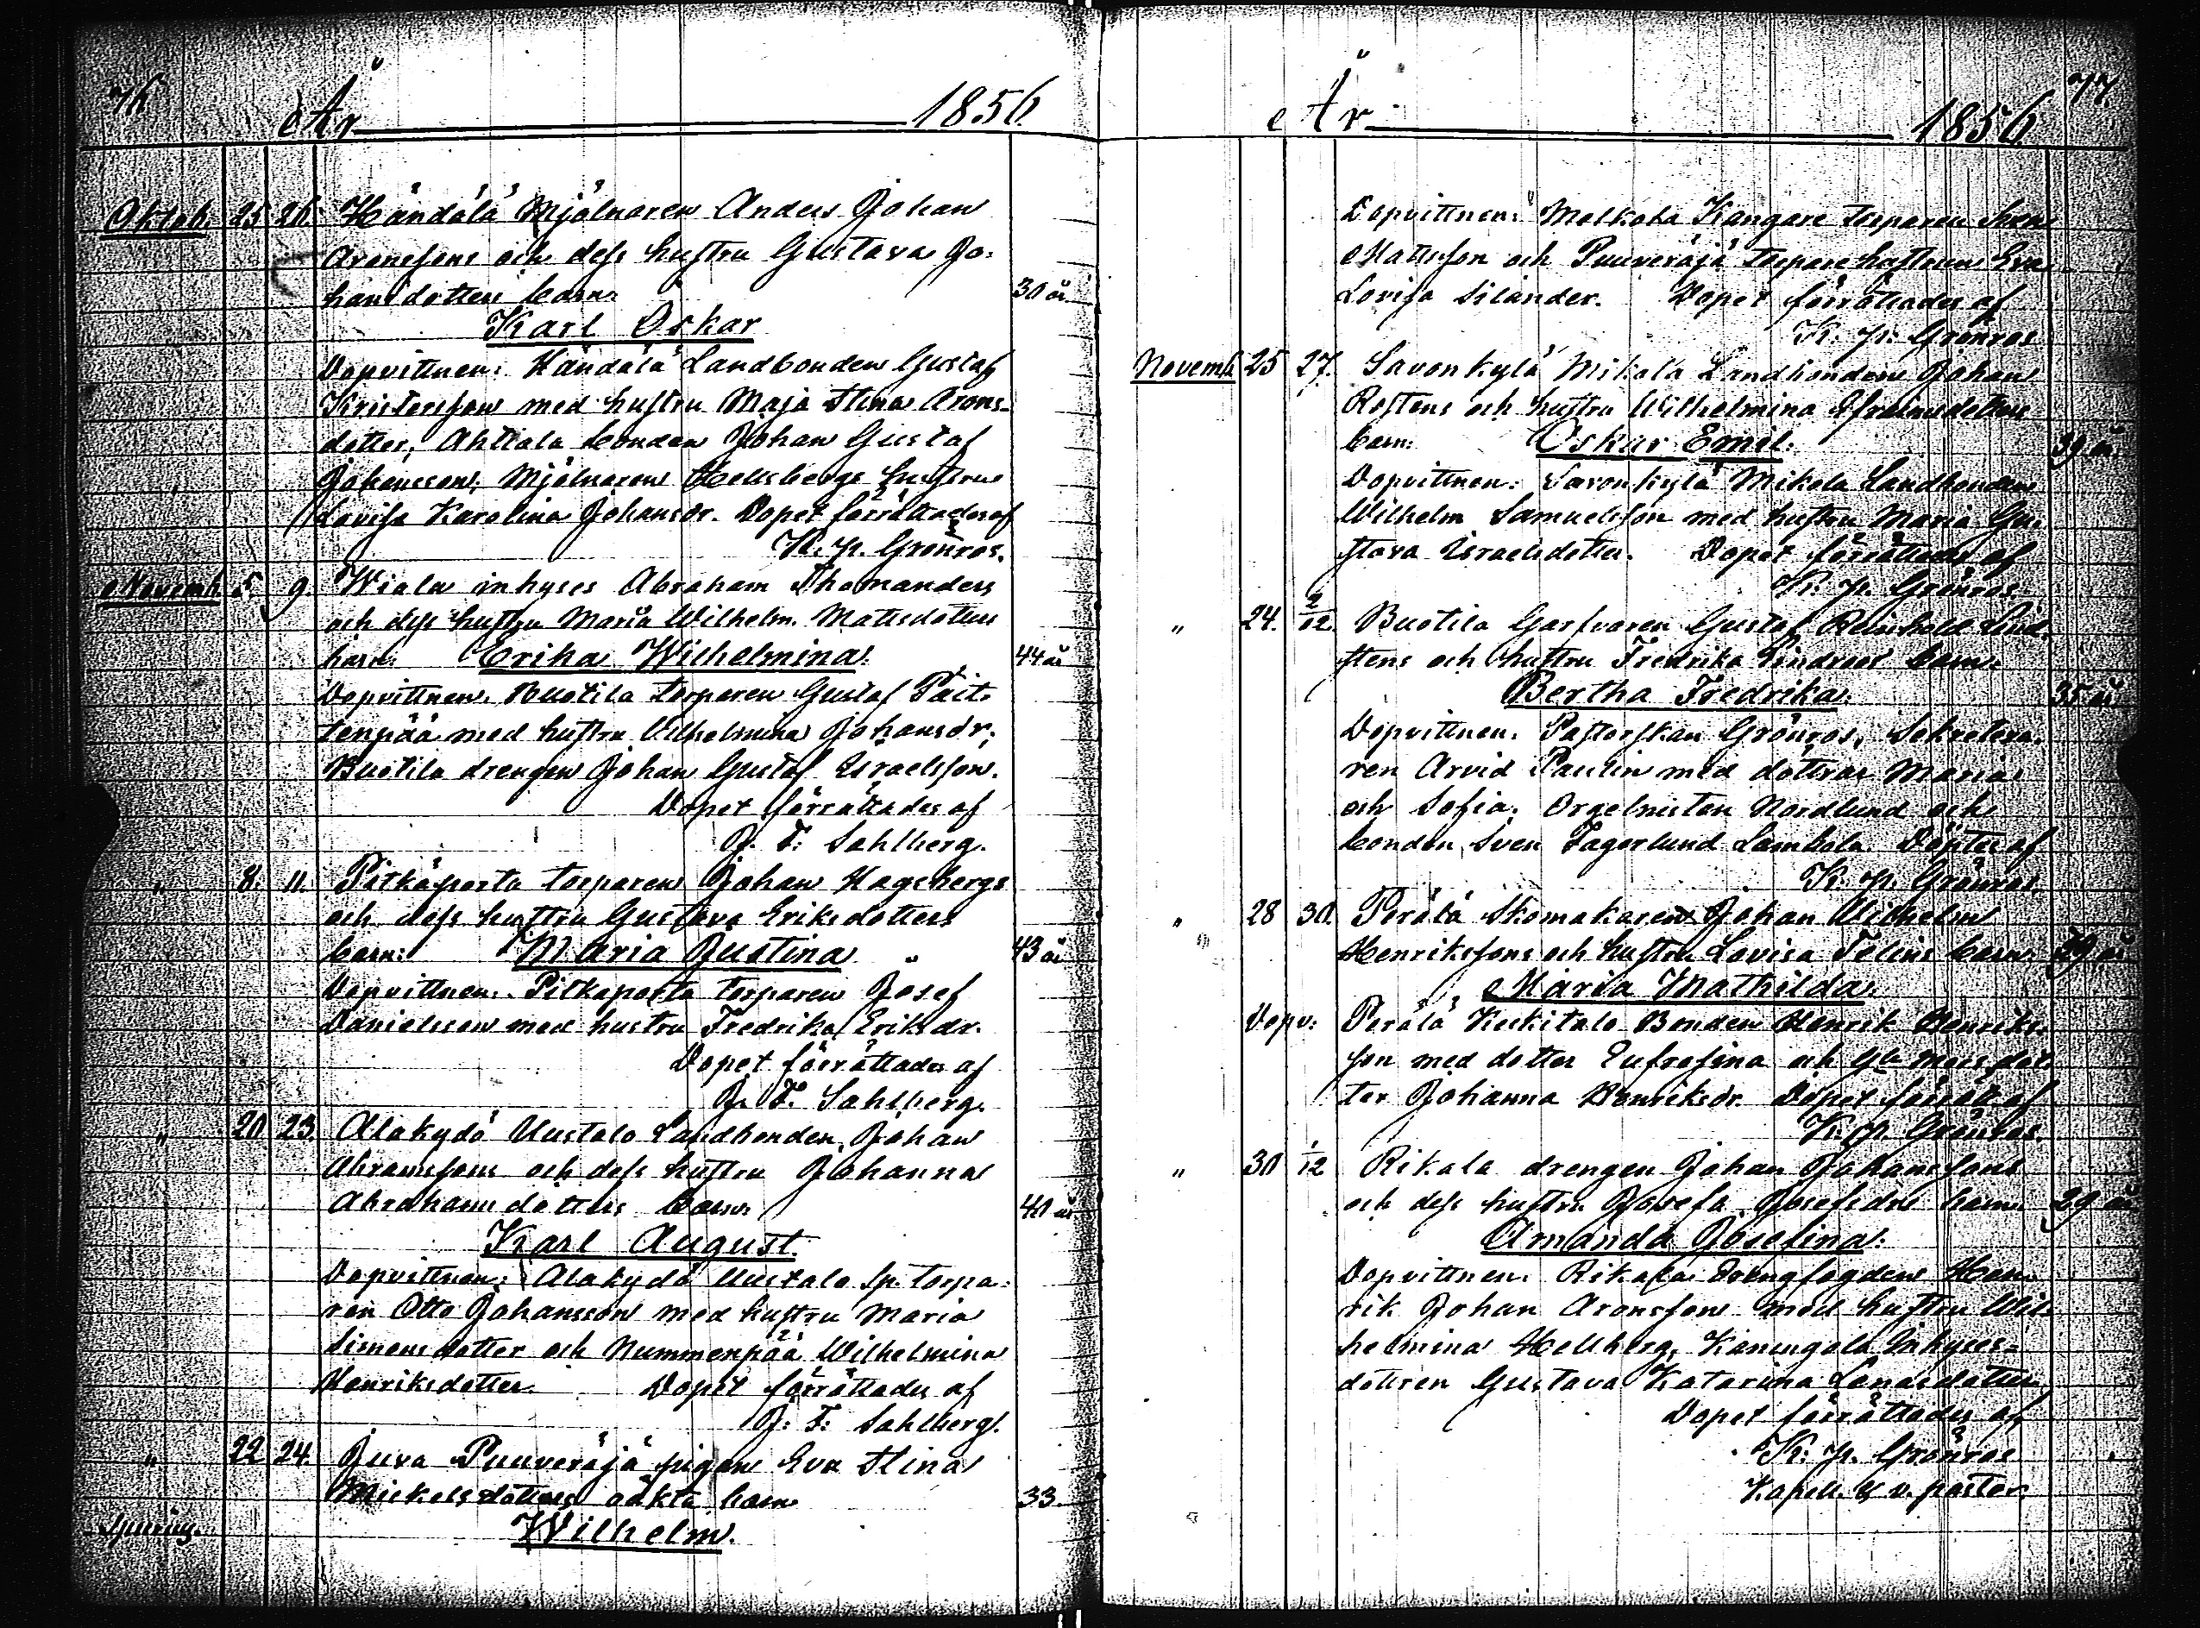 76
År 1856.
Oktob. 25 26. Händälä Mjölnaren Anders Johan
Aronssons och dess hustru Gustava Jo-
hansdotters barn: 30 år
Karl Oskar
Dopvittnen: Händälä Landbonden Gustaf
Kristersson med hustru Maja Stina Arons-
dotter, Ahtiala bonden Johan Gustaf
Johansson, Mjölnaren Hellsbergs hustru
Lovisa Karolina Johansdr. Dopet förrättades af
K. p. Grönros.
Novemb. 5. 9. Wiala inhyses Abraham Thomanders
och dess hustru Maria Wilhelm. Mattsdotters
barn: Erika Wilhelmina. 44 år
Dopvittnen. Buotila torparen Gustaf Pait-
tenpää med hustru Wilhelmina Johansdr,
Buotila drengen Johan Gustaf Israelsson.
Dopet förrättades af
J. F. Sahlberg.
" 8. 11. Pitkäporta torparen Johan Hagebergs
och dess hustru Gustava Eriksdotters
barn: Maria Justina " 43 år
Dopvittnen. Pitkaporta torparen Josef
Danielsson med hustru Fredrika Eriksdr.
Dopet förrättades af
J. F. Sahlberg.
" 20 23. Alakydö Uustalo Landbonden Johan
Abramssons och dess hustru Johanna
Abrahamsdotters barn: 40 år
Karl August.
Dopvittnen: Alakydö Uustalo Sp. torpa-
ren Otto Johansson med hustru Maria
Simonsdotter och Nummenpää Wilhelmina
Henriksdotter. Dopet förrättades af
J: F: Sahlberg.
" 22 24. Juva Puuveräjä pigan Eva Stina
Mickelsdotters oäkta barn 33.
Spuriug.
Wilhelm.
77.
År 1856
Dopvittnen: Melkola Kangare torparen
Mattsson och Puuveräjä torparehustrun Eva
Lovisa Silander. Dopet förrättades af
K. p. Grönros
Novemb. 25 27. Savonkylä Mikola Landbonden Johan
Rostens och hustru Wilhelmina Efraimsdotters
barn: Oskar Emil. 39 år
Dopvittnen: Savonkylä Mikola Landbonden
Wilhelm Samuelsson med hustru Maria Gu-
stava Israelsdotter. Dopet förrättades af
K. p. Grönros.
" 24. 2/12. Buotila Garfvaren Gustaf Reinhold Lind-
stens och hustru Fredrika Lindroos barn.
Bertha Fredrika. 35 år
Dopvittnen. Pastorskan Grönros, Sekretera-
ren Arvid Paulin med döttrar Maria
och Sofia. Orgelnisten Nordlund och
bonden Sven Fagerlund Lambola. Döptes af
K. p. Grönros
" 28 30. Perälä Skomakaren Johan Wilhelm
Henrikssons och hustru Lovisa Felins barn. 39 år
Maria Mathilda.
Dopv: Perälä Keskitalo Bonden Henrik Henriks-
son med dotter Eufrosina och
ter Johanna Henriksdr. Dopet förrätt. af
K. p. Grönros
" 30 1/12 Rikala drengen Johan Johanssons
och dess hustru Josefa Josefsdrs barn. 29 år
Amanda Josefina.
Dopvittnen. Rikala Drengfogden Hen-
rik Johan Aronsson med hustru Wil-
helmina Hellberg, Kaningola Inhyses-
dottren Gustava Katarina
Dopet förrättades af
K. p. Grönros
Kapell. & v. pastor.